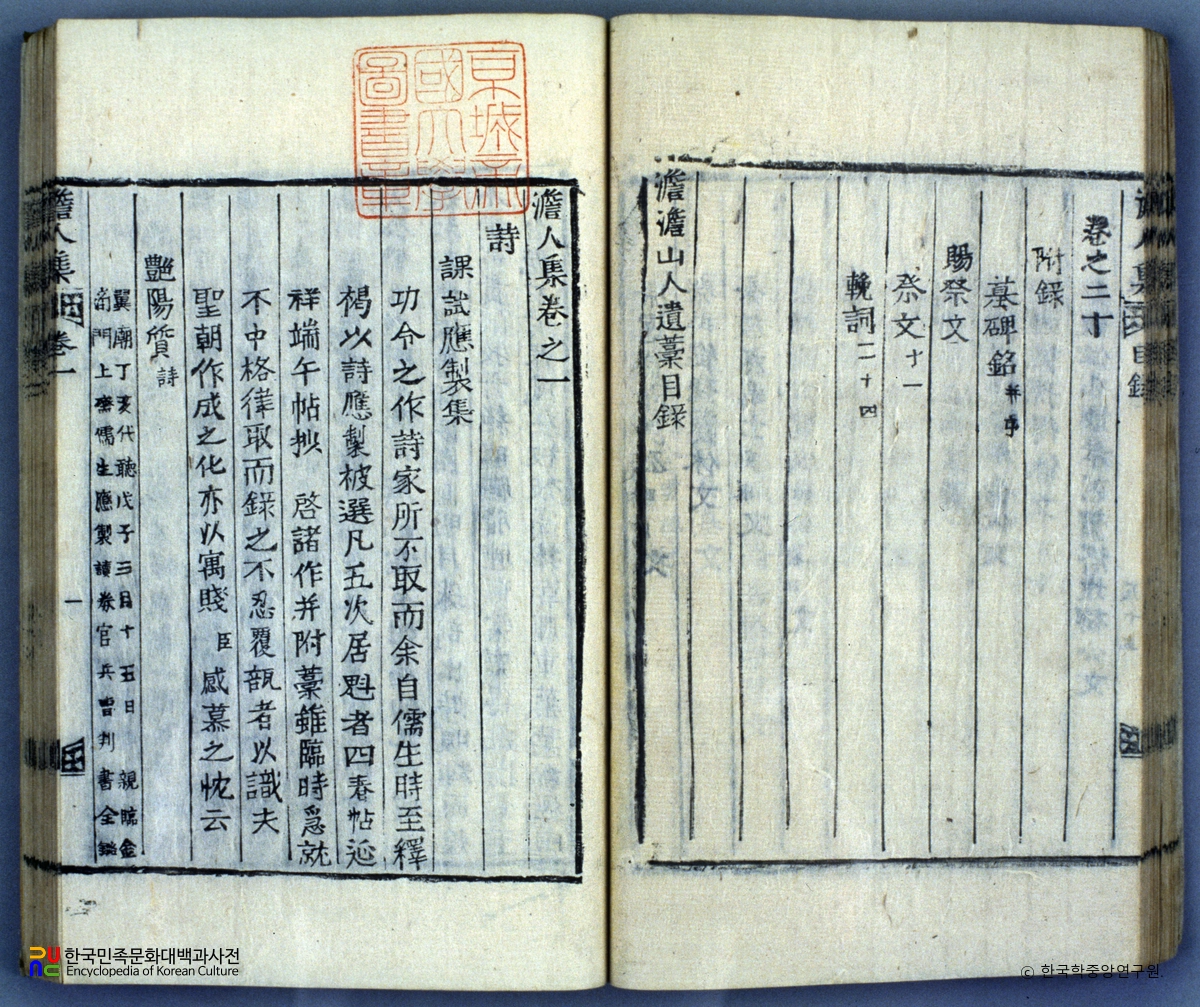 卷之二十
附錄
墓碑銘 幷序
賜祭文
祭文十一
輓詞二十四
澹澹山人遺藁目錄
京城帝
國大學
圖書章
澹人集卷之一
詩
課試應製集
功令之作詩家所不取而余自儒生時至釋
褐以詩應製被選凡五次居魁者四春帖延
祥端午帖抄 啓諸作幷附藁雖臨時急就
不中格律取而錄之不忍覆瓿者以識夫
聖朝作成之化亦以寓賤 臣 感慕之忱云
艷陽質 詩
翼廟丁亥代聽戊子三月十五日 親臨金
商門上齋儒生應製讀券官兵曹判書金
澹人集 卷一
一
한국민족문화대백과사전
Encyclopedia of Korean Culture
© 한국학중앙연구원.